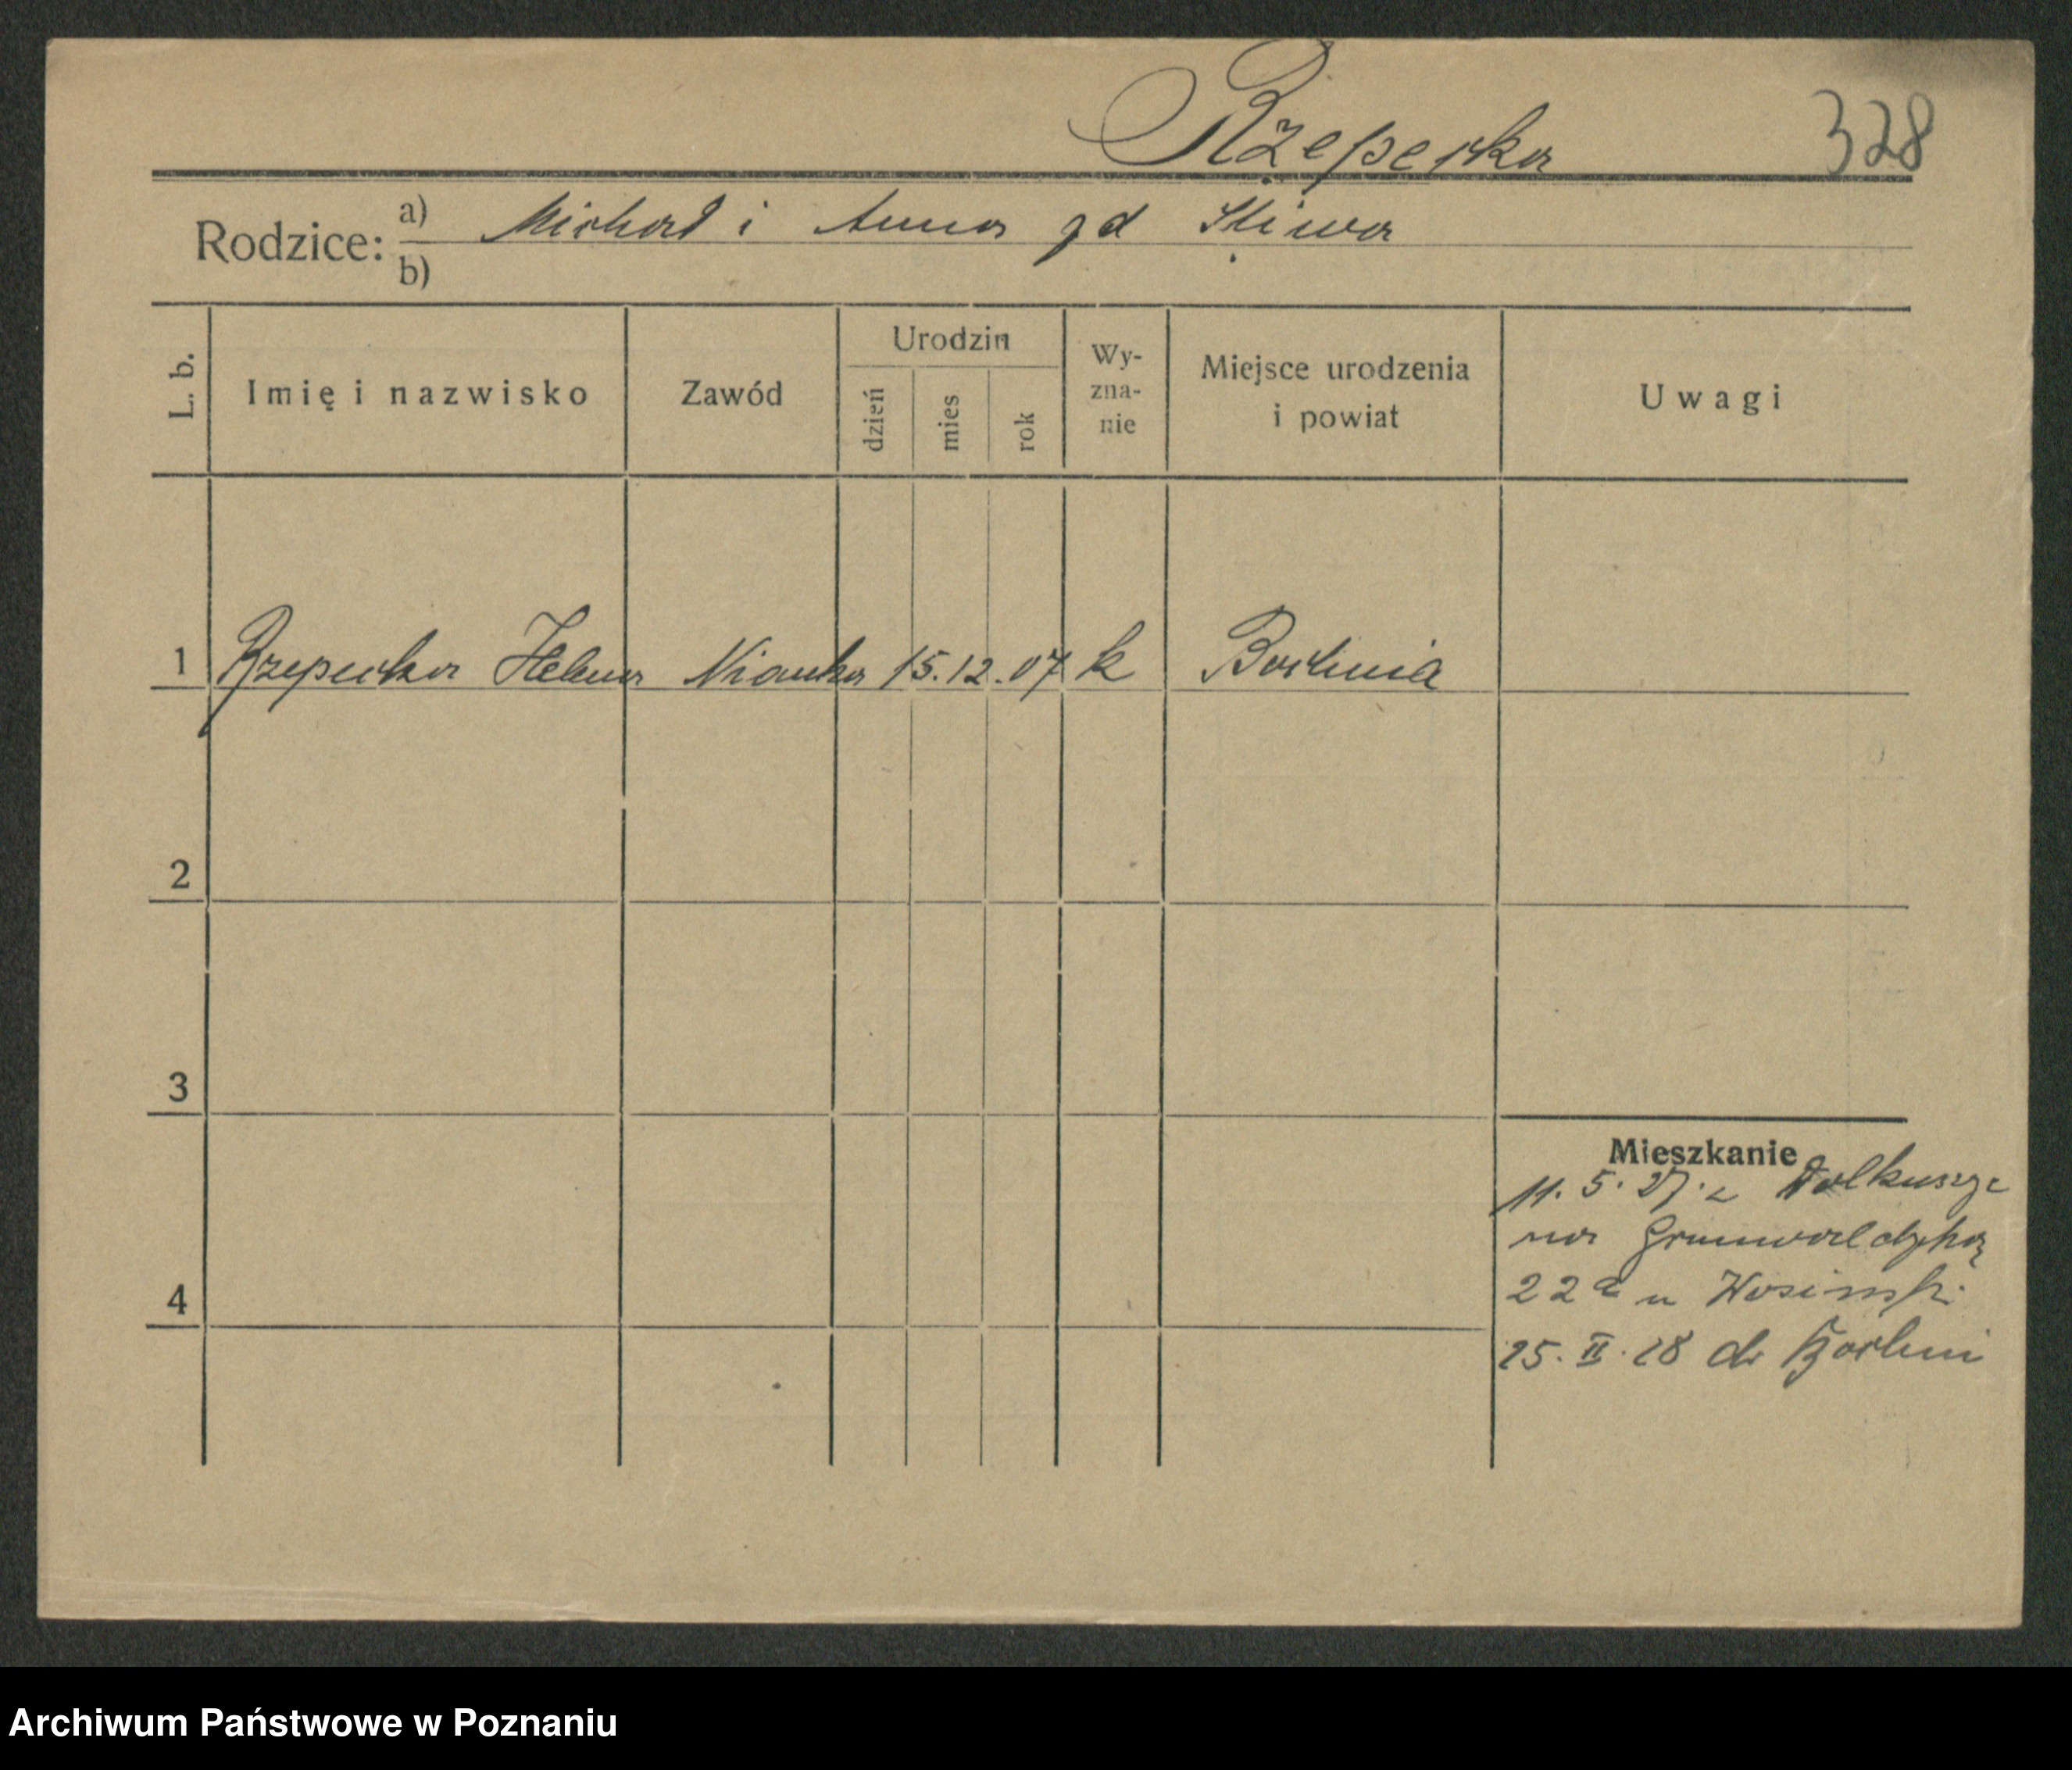 Rzepecka 328
Rodzice: a) Michał i Anna zd Śliwa
b)
L. b. Imię i nazwisko Zawód Urodzin dzień mies rok Wy-zna-nie Miejsce urodzenia i powiat Uwagi
1 Rzepecka Helena Nianka 15. 12. 07 k
2
3
Mieszkanie
11. 5. 27. z
na Grunwaldzką
4
22a u
25. II. 28 do
Archiwum Państwowe w Poznaniu